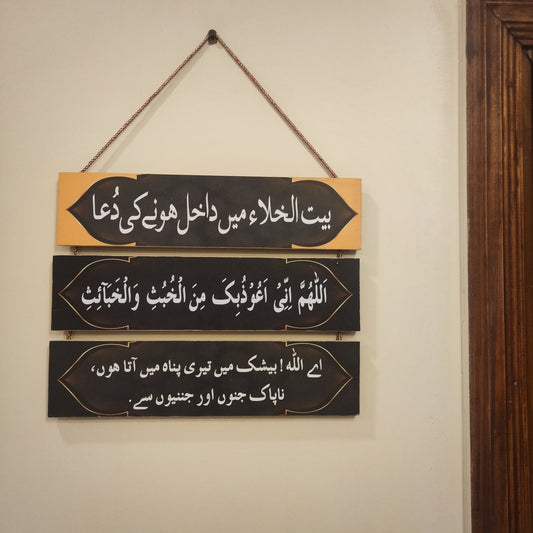 بیت الخلاء میں داخل ہونے کی دُعا
اَللّٰهُمَّ اِنِّیْ اَعُوْذُبِکَ مِنَ الْخُبُثِ وَالْخَبَآئِثِ
اے اللّٰہ ! بیشک میں تیری پناہ میں آتا ہوں،
ناپاک جنوں اور جننیوں سے.